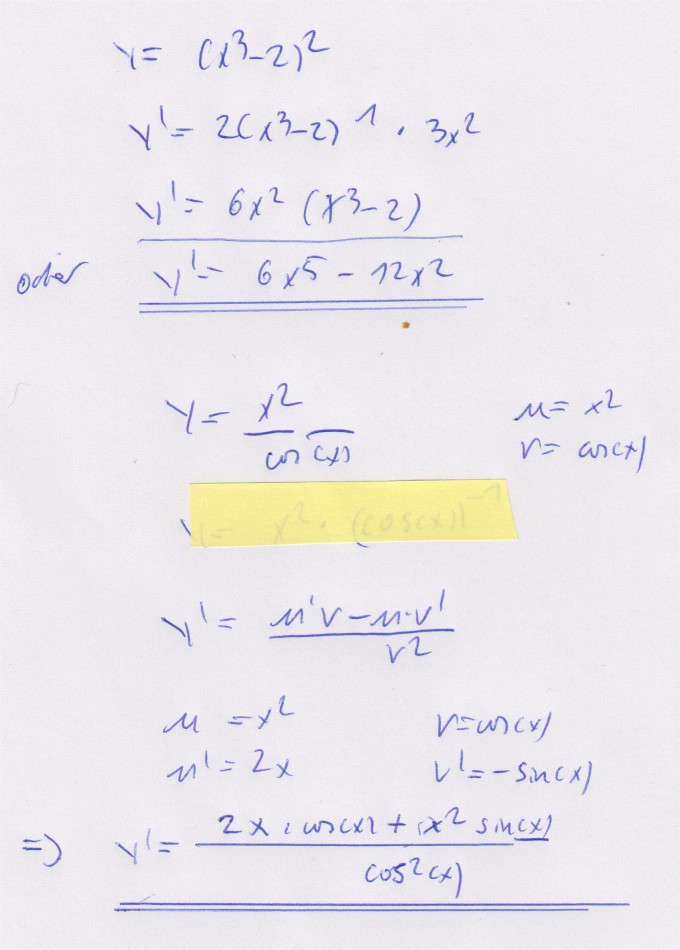 y = (x³-2)²
y' = 2(x³-2)¹ · 3x²
y' = 6x² (x³-2)
oder y' = 6x⁵ - 12x²
y = x²/cos(x) u = x²
v = cos(x)
y = x² · (cos(x))⁻¹
y' = (u'v - u·v')/v²
u = x² v = cos(x)
u' = 2x v' = -sin(x)
=> y' = (2x · cos(x) + x² sin(x))/cos²(x)